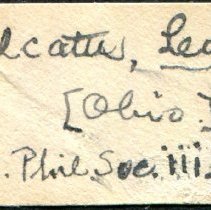 lcatus, Lea
[Ohio.
. Phil. Soc. iii.